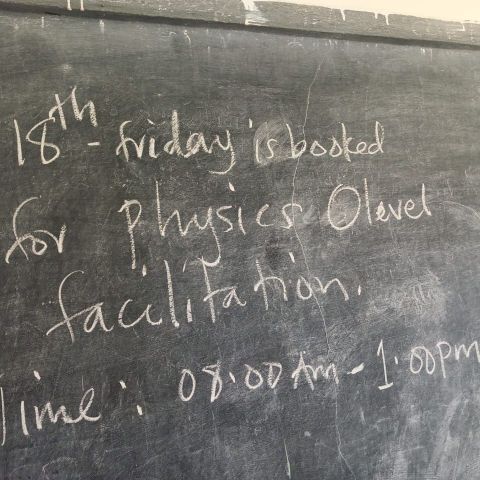 18th - friday is booked
for physics Olevel
facilitation.
Time: 08.00 Am - 1.00pm